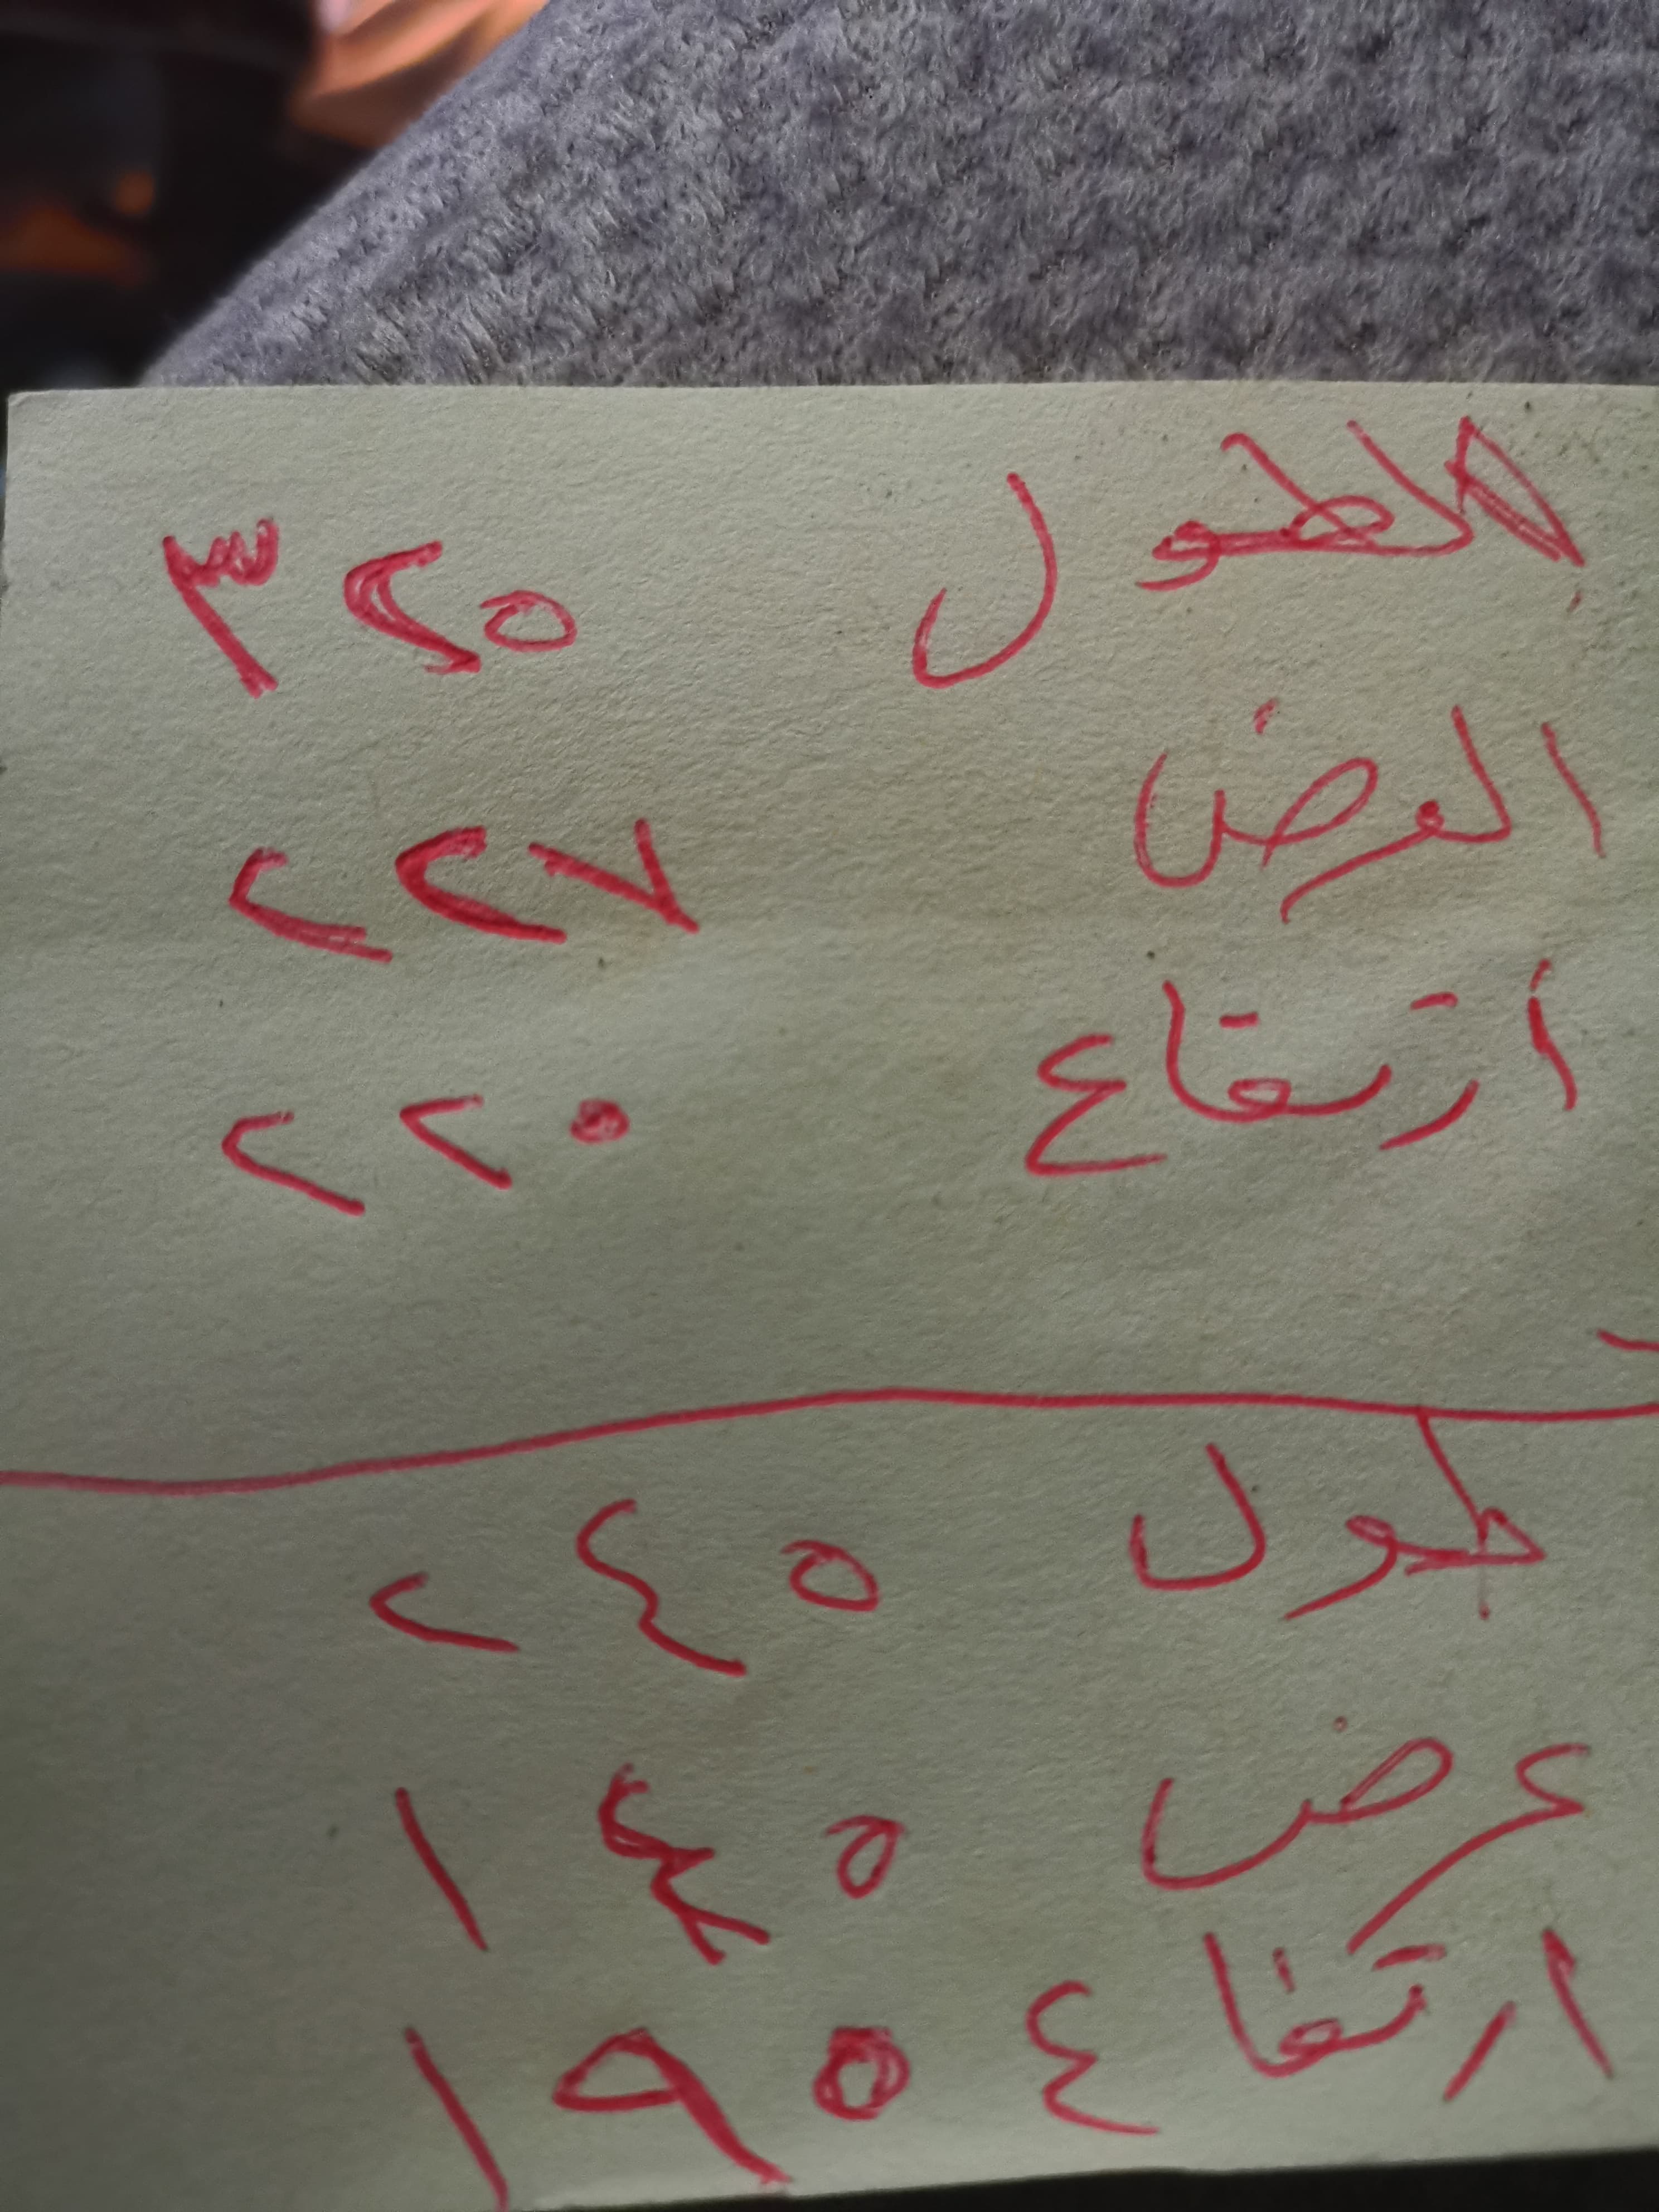 الطول ٣٢٥
العرض ٢٢٧
أرتفاع ٢٢٠
طول ٢٤٥
عرض ١٤٥
ارتفاع ١٩٥